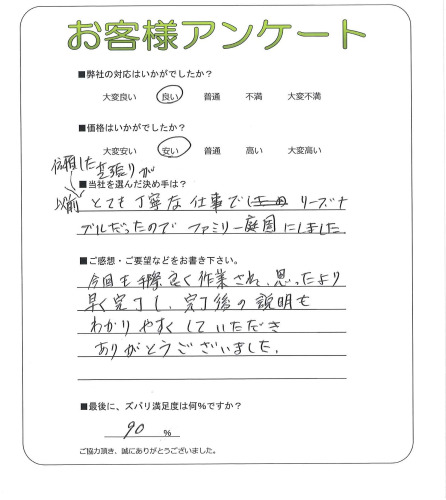 お客様アンケート
■弊社の対応はいかがでしたか？
大変良い 良い 普通 不満 大変不満
■価格はいかがでしたか？
大変安い 安い 普通 高い 大変高い
依頼した芝張りが
■当社を選んだ決め手は？
以前 とても丁寧な仕事で リーズナ
ブルだったので ファミリー庭園にしました
■ご感想・ご要望などをお書き下さい。
今回も手際良く作業され、思ったより
早く完了し、完了後の説明も
わかりやすくしていただき
ありがとうございました。
■最後に、ズバリ満足度は何%ですか？
90 %
ご協力頂き、誠にありがとうございました。